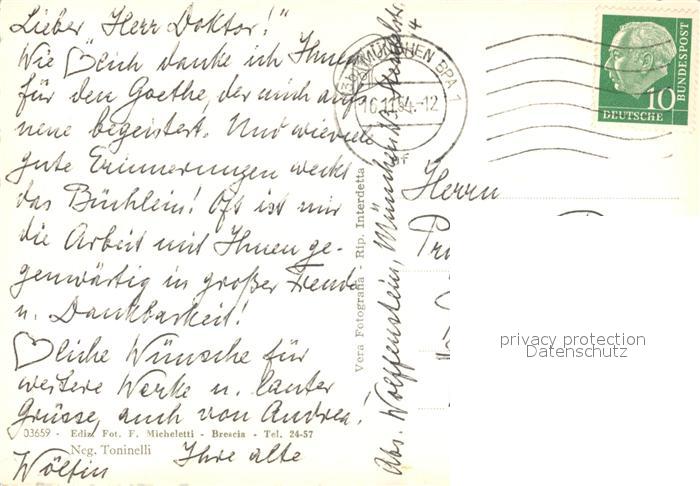 Lieber Herr Doktor!"
Wie ♡lich danke ich Ihnen
für den Goethe, der mich aufs
neue begeistert. Und wieviele
gute Erinnerungen weckt
das Büchlein! Oft ist mir
die Arbeit mit Ihnen ge-
genwärtig in großer Freude
u. Dankbarkeit!
♡liche Wünsche für
weitere Werke u. lauter
Grüsse, auch von Andrea!
03659 - Ediz. Fot. F. Micheletti - Brescia - Tel. 24-57
Neg. Toninelli
Ihre alte
Wölfin
Vera Fotografia - Rip. Interdetta
Abs. Wolffenstein, München 13,
4
MÜNCHEN BPA 1
16.11.54.-12
10
DEUTSCHE
BUNDESPOST
Herrn
privacy protection
Datenschutz